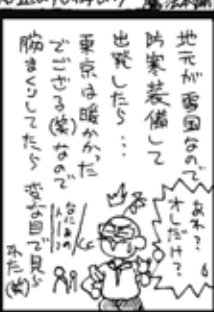 地元が雪国なので
防寒装備して
出発したら…
東京は暖かかった
でござる(笑)なので
腕まくりしてたら
変な目で見ら
れた(笑)
あれ?
オレだけ?